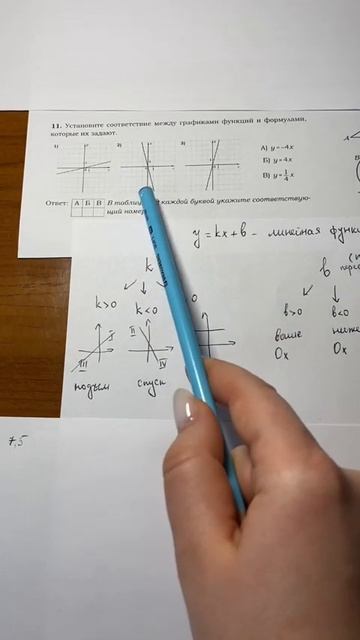 11. Установите соответствие между графиками функций и формулами,
которые их задают.
1) 2) 3)
А) y = -4x
Б) y = 4x
В) y = 1/4 x
Ответ: А Б В
В таблице каждой буквой укажите соответствую-
щий номер
y = kx + b - линейная
k
b
k>0 k<0
b>0 b<0
I II
III IV
выше ниже
Ox Ox
подъём спуск
7,5